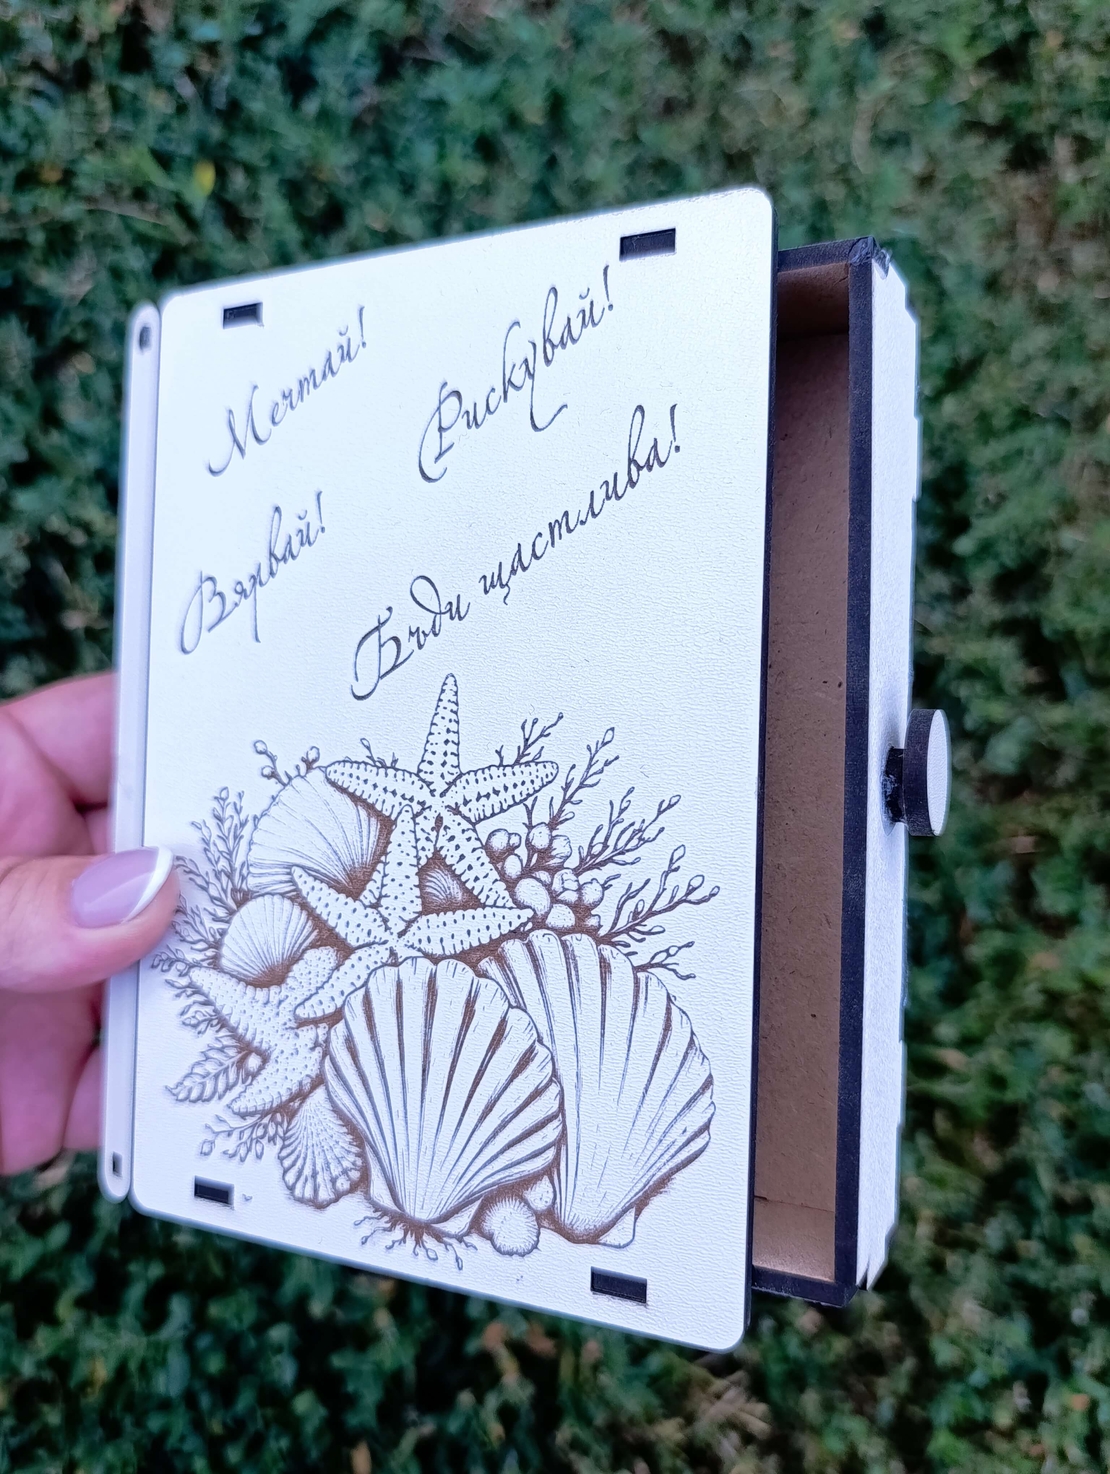 Мечтай!
Рискувай!
Вярвай!
Бъди щастлива!